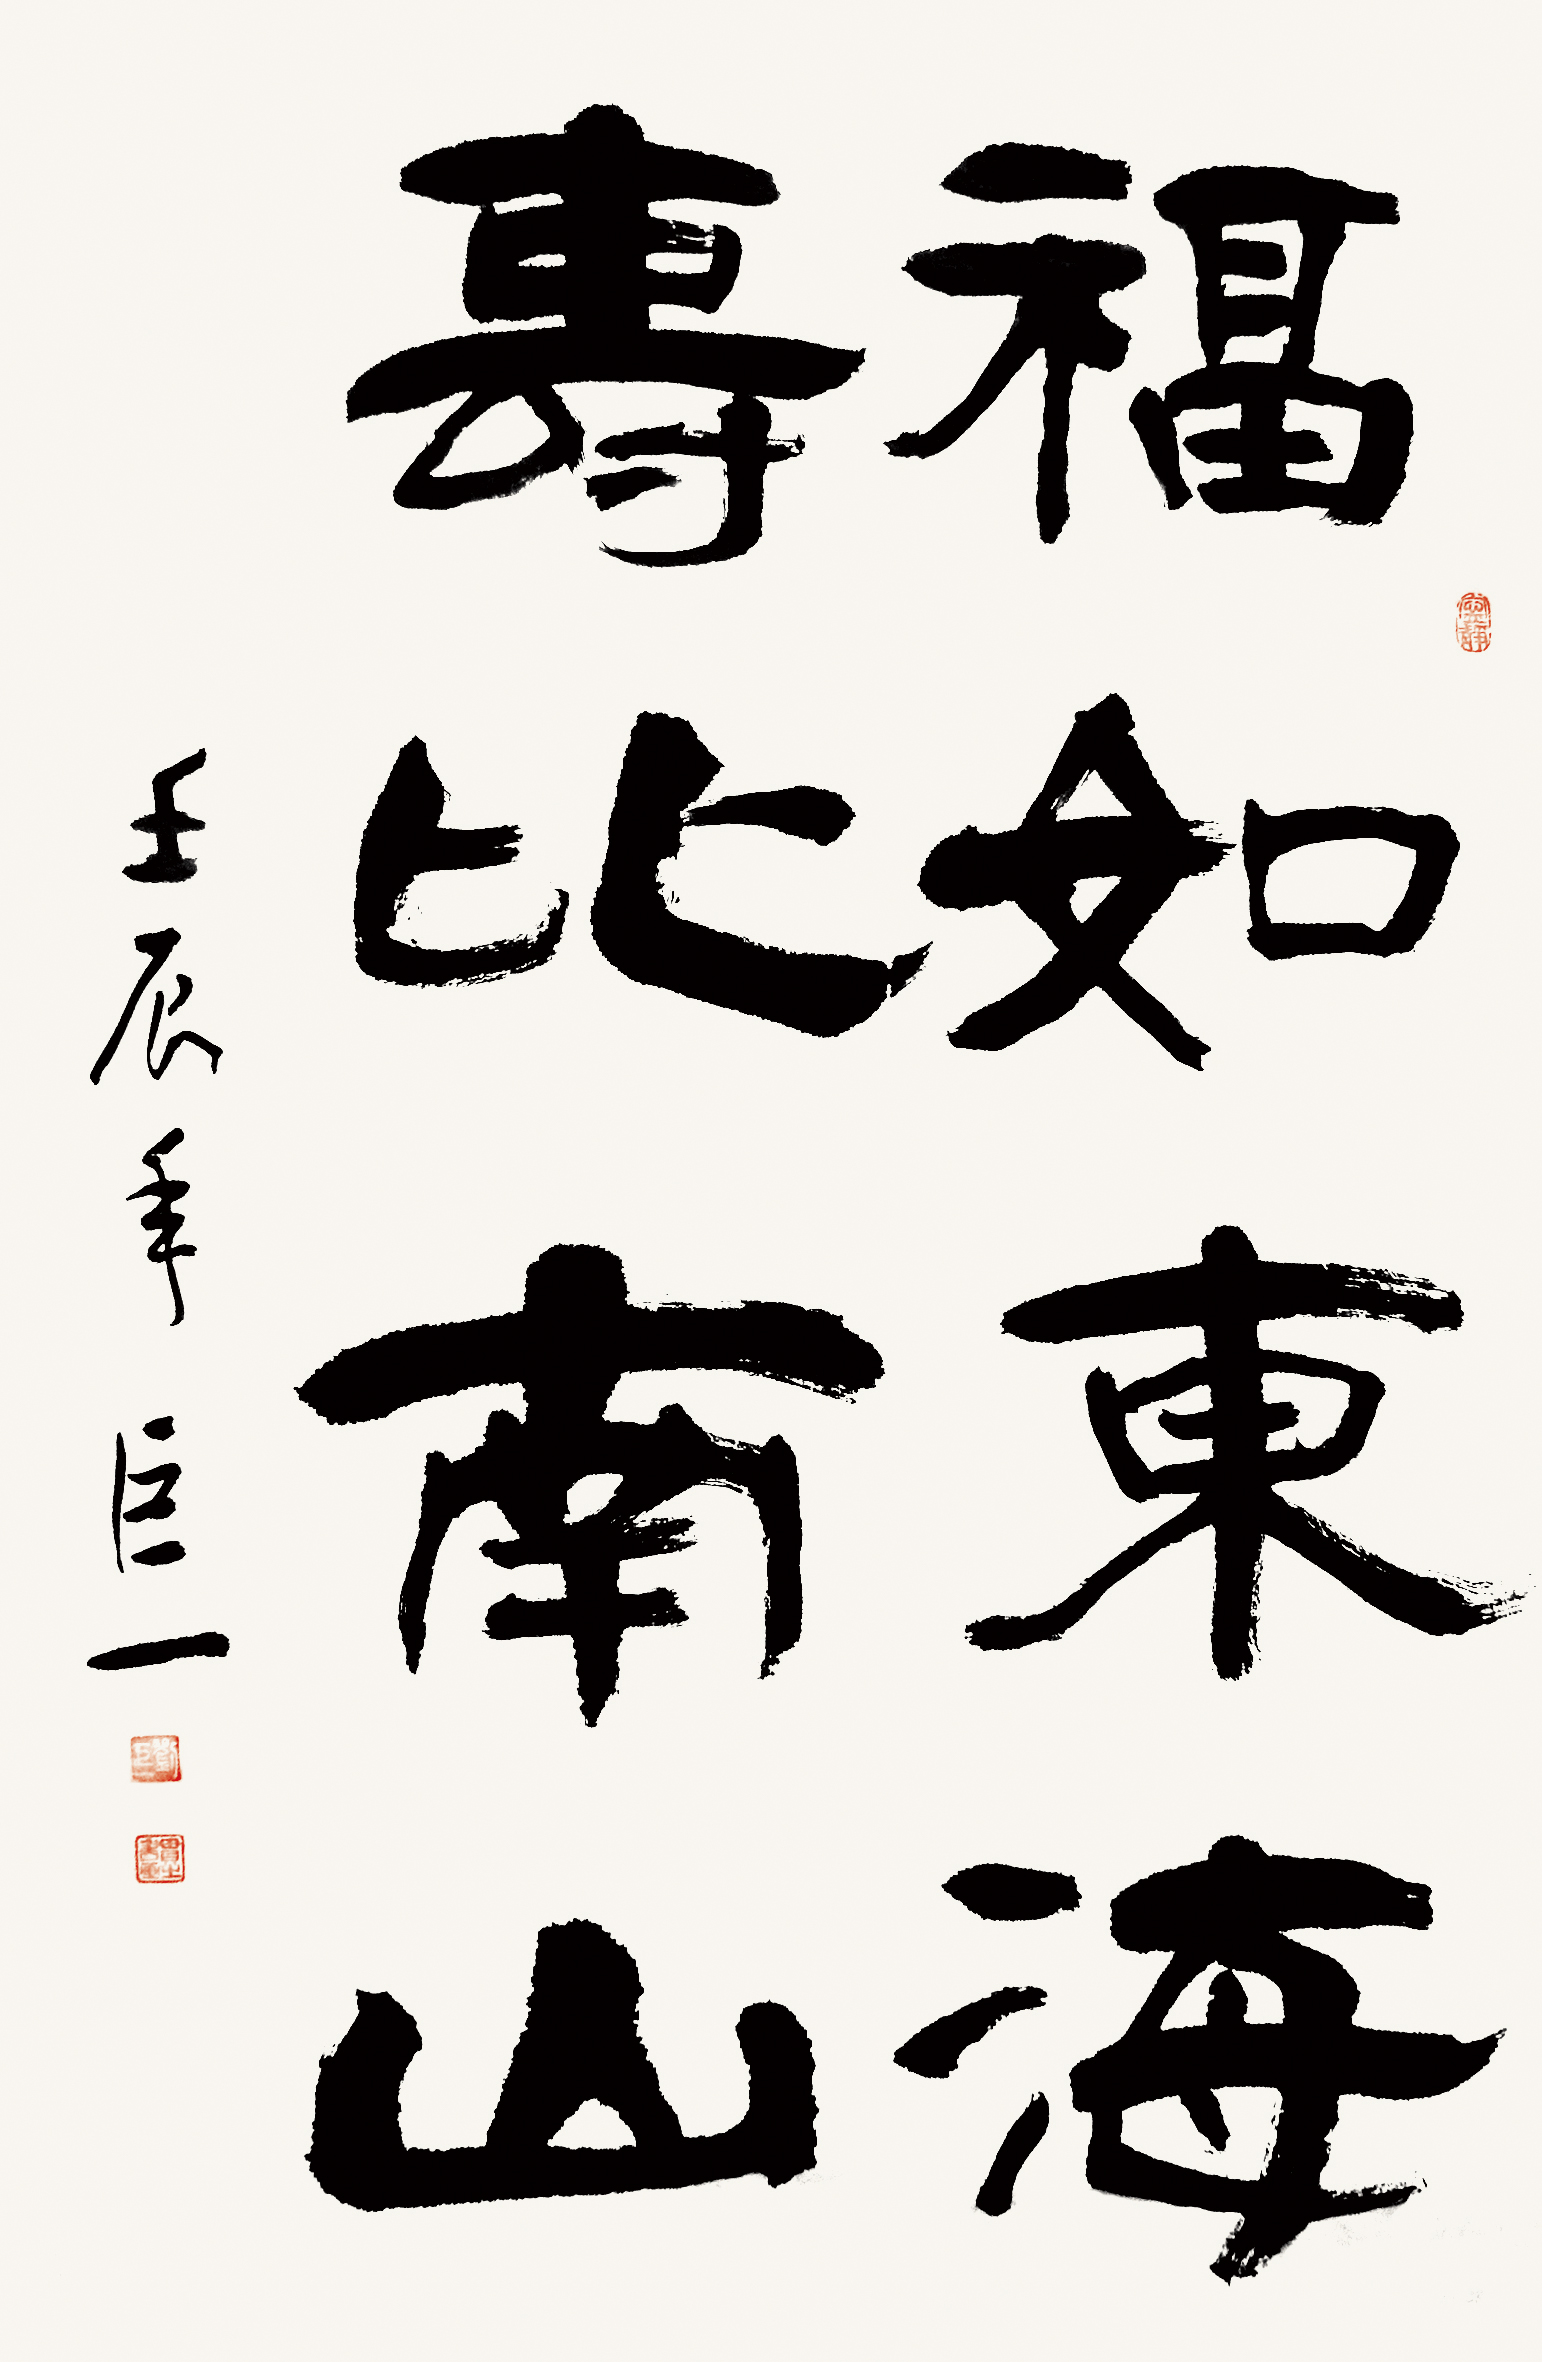 福如東海
壽比南山
壬辰年 巨一